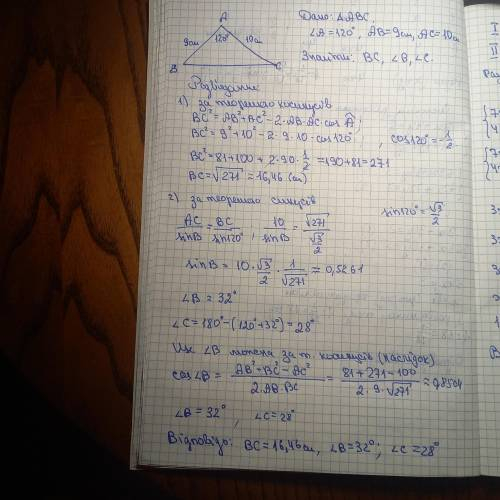 A
Дано: ΔABC,
∠A=120°, AB=9см, AC=10см
9см 120° 10см
Знайти: BC, ∠B, ∠C.
B C
Розвʼязання
1) за теоремою косинусів
BC²=AB²+BC²-2·AB·AC·cos Â;
BC²=9²+10²-2·9·10·cos120°, cos120°=-1/2
BC²=81+100+2·90·1/2=190+81=271
BC=√271=16,46 (см)
2) за теоремою синусів
sin120°=√3/2
AC/sinB=BC/sin120°, 10/sinB=√271/(√3/2)
sinB=10·√3/2·1/√271≈0,5261
∠B=32°
∠C=180°-(120°+32°)=28°
Ще ∠B можна за т. косинусів (наслідок)
cos∠B=(AB²+BC²-AC²)/(2·AB·BC)=(81+271-100)/(2·9·√271)≈0,8504
∠B=32°, ∠C=28°
Відповідь: BC=16,46см, ∠B=32°; ∠C=28°
I
II